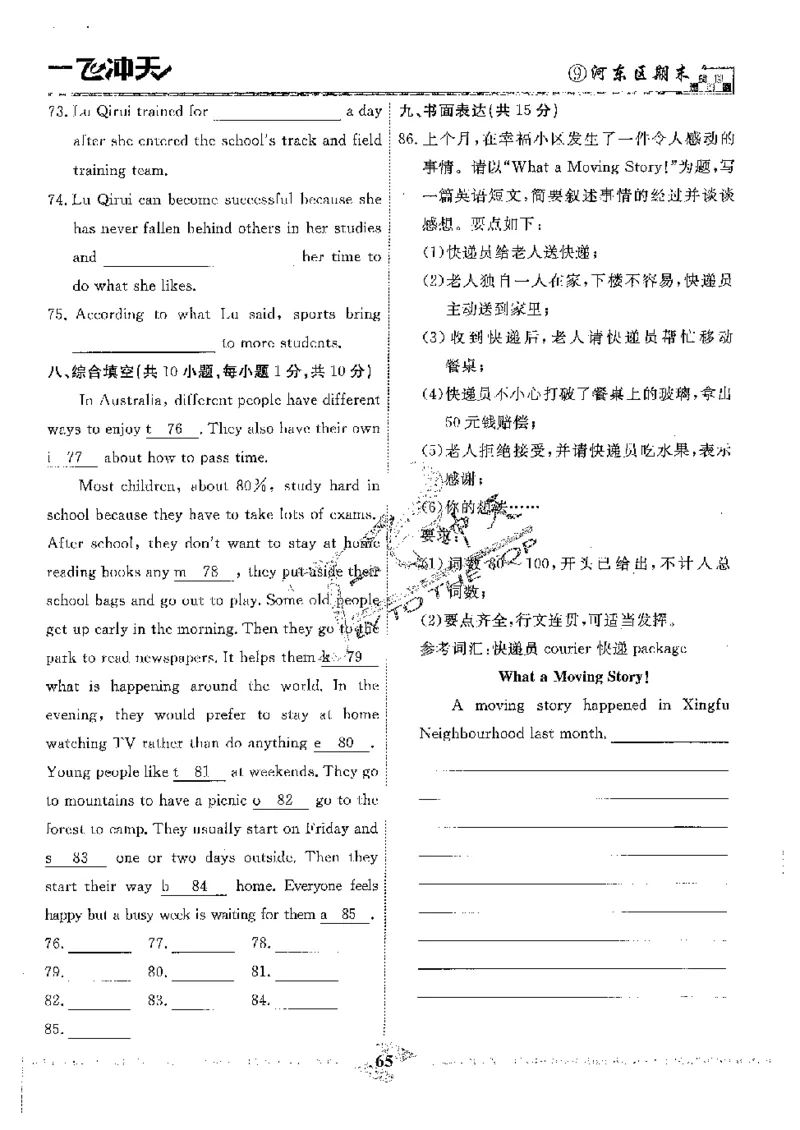 一飞冲天
⑨河东区期末
73. Lu Qirui trained for ________ a day
after she entered the school's track and field
training team.
74. Lu Qirui can become successful because she
has never fallen behind others in her studies
and ________ her time to
do what she likes.
75. According to what Lu said, sports bring
________ to more students.
八、综合填空(共 10 小题,每小题 1 分,共 10 分)
In Australia, different people have different
ways to enjoy t 76 . They also have their own
i 77 about how to pass time.
Most children, about 80%, study hard in
school because they have to take lots of exams.
After school, they don't want to stay at home
reading books any m 78 , they put aside their
school bags and go out to play. Some old people
get up early in the morning. Then they go to the
park to read newspapers. It helps them k 79
what is happening around the world. In the
evening, they would prefer to stay at home
watching TV rather than do anything e 80 .
Young people like t 81 at weekends. They go
to mountains to have a picnic o 82 go to the
forest to camp. They usually start on Friday and
s 83 one or two days outside. Then they
start their way b 84 home. Everyone feels
happy but a busy week is waiting for them a 85 .
76. ________ 77. ________ 78. ________
79. ________ 80. ________ 81. ________
82. ________ 83. ________ 84. ________
85. ________
九、书面表达(共 15 分)
86. 上个月,在幸福小区发生了一件令人感动的
事情。请以“What a Moving Story!”为题,写
一篇英语短文,简要叙述事情的经过并谈谈
感想。要点如下:
(1)快递员给老人送快递;
(2)老人独自一人在家,下楼不容易,快递员
主动送到家里;
(3)收到快递后,老人请快递员帮忙移动
餐桌;
(4)快递员不小心打破了餐桌上的玻璃,拿出
50 元钱赔偿;
(5)老人拒绝接受,并请快递员吃水果,表示
感谢;
(6)你的想法……
要求:
(1)词数 80～100,开头已给出,不计入总
词数;
(2)要点齐全,行文连贯,可适当发挥。
参考词汇:快递员 courier 快递 package
What a Moving Story!
A moving story happened in Xingfu
Neighbourhood last month. ________
TO THE TOP
65